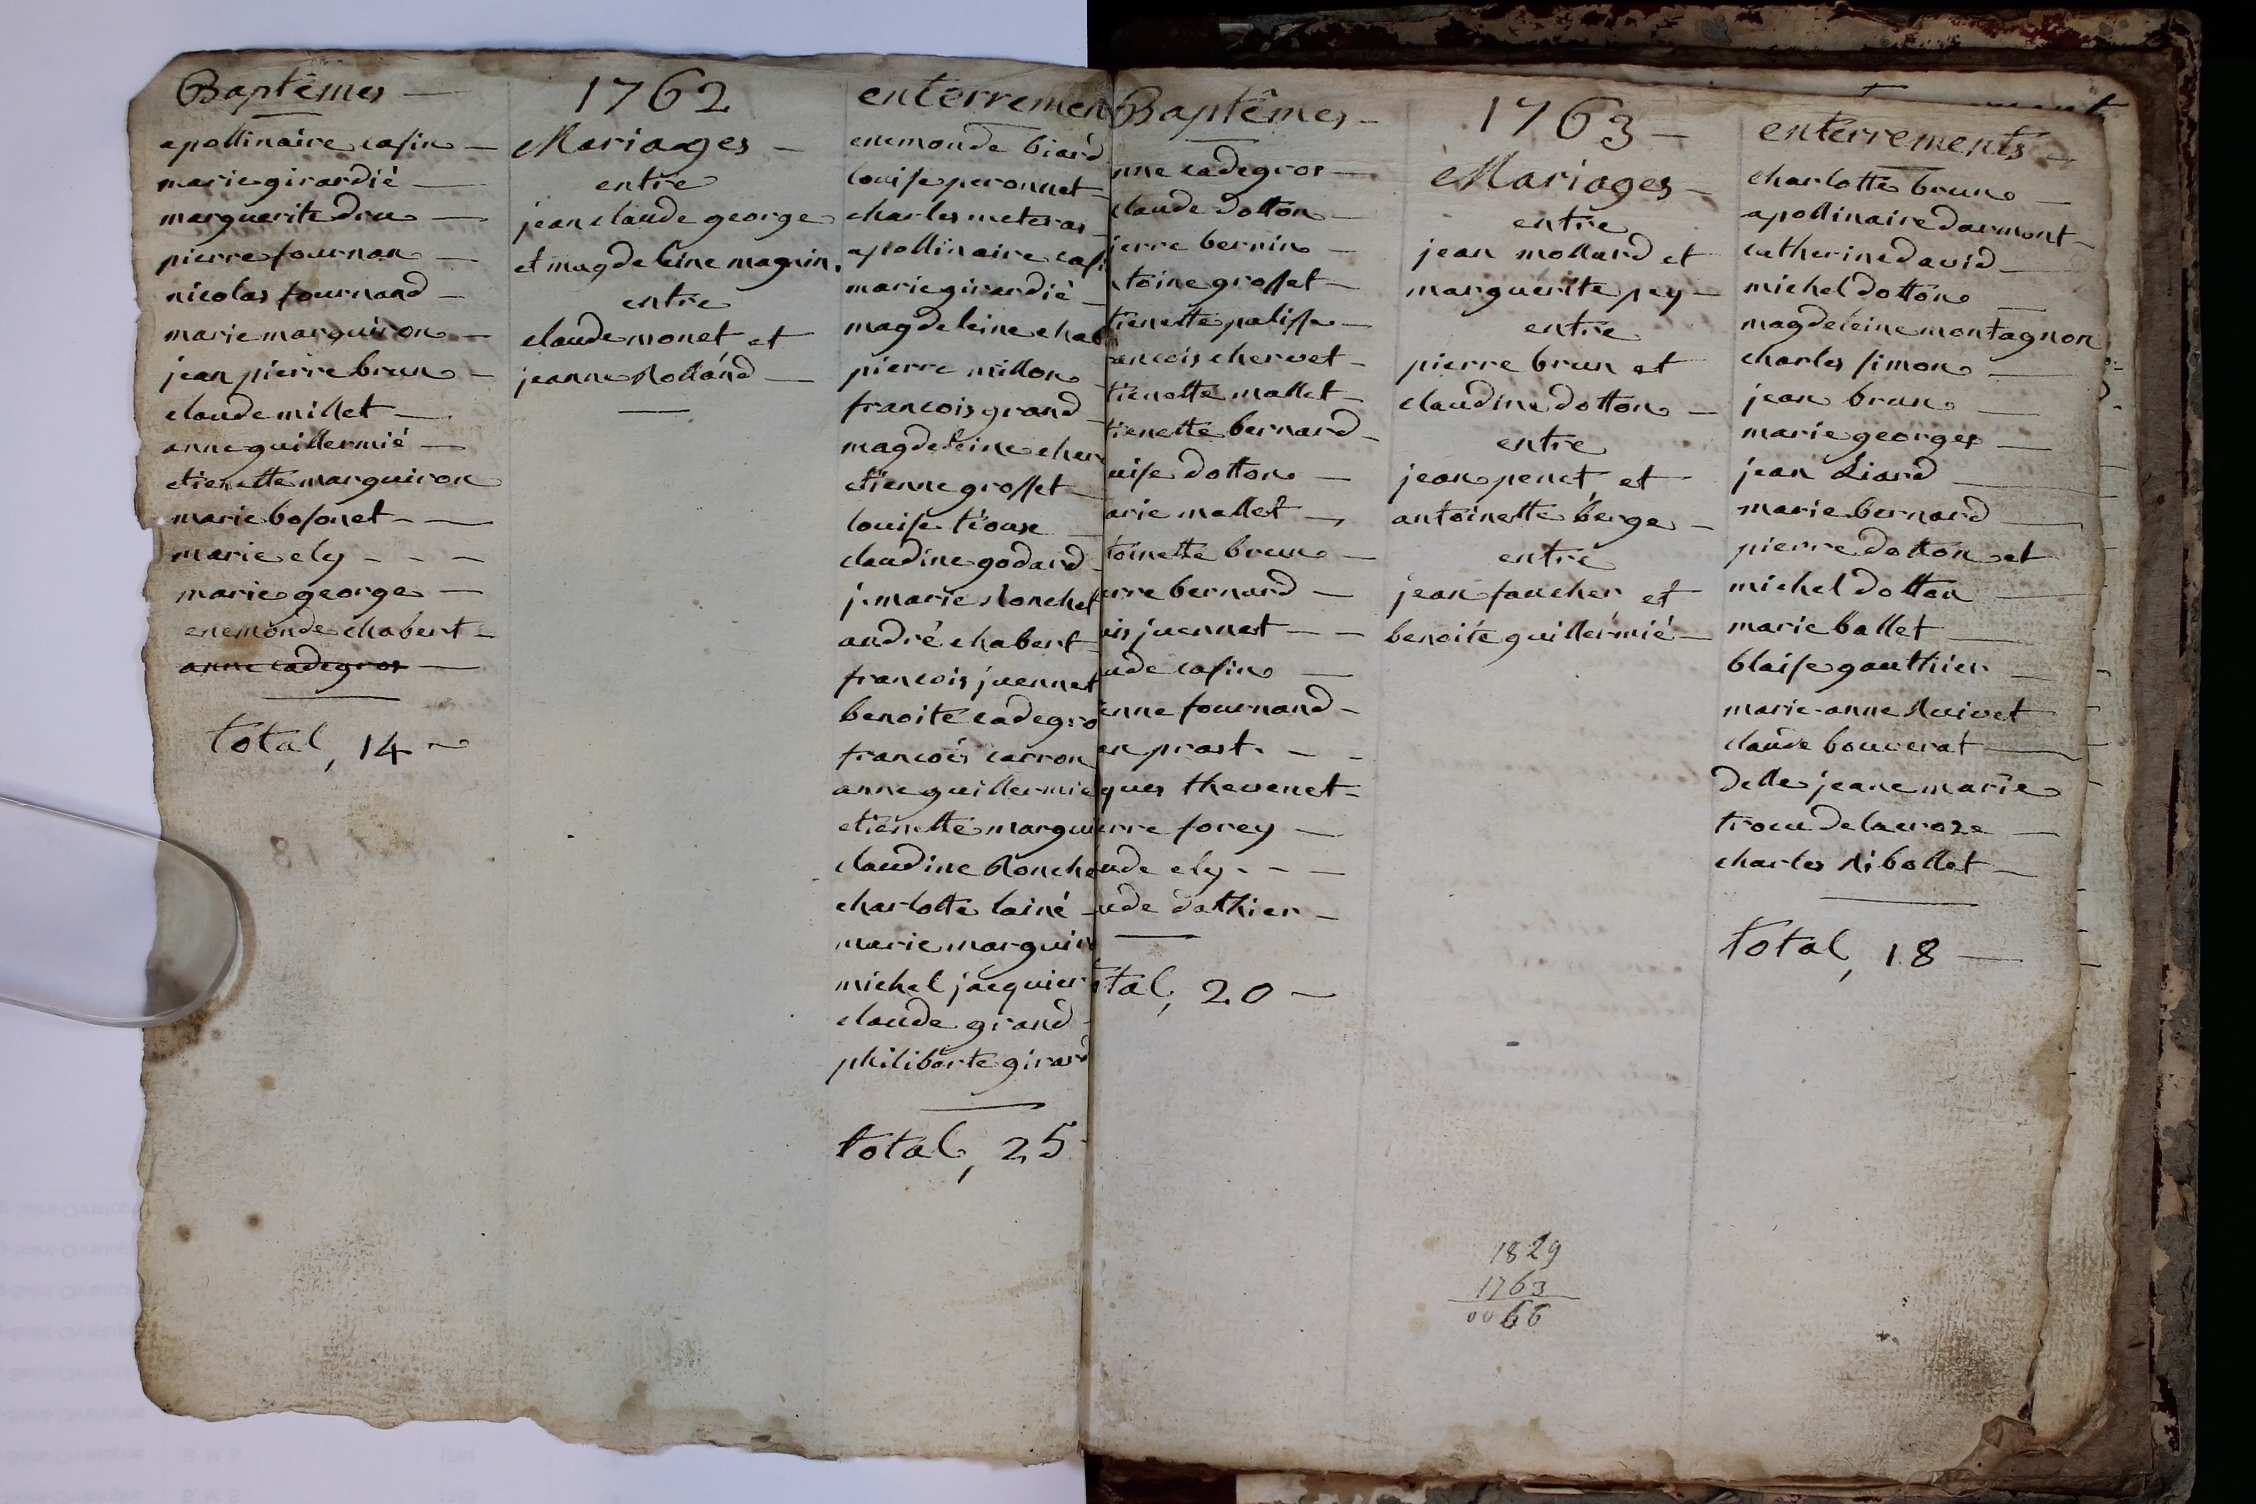 Baptêmes —
apollinaire casin —
marie girardié —
marguerite dru —
pierre fournan —
nicolas fournand —
marie marguiron —
jean pierre brun —
claude millet —
anne guillermié —
etienette marguiron
marie bosonet - —
marie ely - - -
marie george —
enemonde chabert —
anne cadegros —
total, 14
1762
Mariages —
entre
jean claude george
et magdeleine magnin.
entre
claude monet et
jeanne Rolland —
enterremen
enemonde biard
louise peronnet
charles meteras
apollinaire casi
marie girardié
magdeleine chab
pierre millon
francois grand
magdeleine cher
etienne grosset
louise tioux
claudine godard
j. marie Ronchet
andré chabert
francois juennet
benoite cadegro
francois carron
anne guillermié
etienette margui
claudine Ronche
charlotte lainé
marie marguir
michel jacquier
claude grand
philiberte girard
total, 25
Baptêmes —
nne cadegros —
claude dotton —
ierre bernin —
toine grosset —
tienette palisse —
ancois chervet —
tienette mallet —
tienette bernard —
uise dotton —
arie mallet —
toinette brun —
erre bernard —
is juennet - —
ude casin —
enne fournand —
an prost. - -
ques thevenet -
erre forey —
ude ely - - -
ude dathier —
tal, 20 —
1763 —
Mariages —
entre
jean mollard et
marguerite pey —
entre
pierre brun et
claudine dotton —
entre
jean penet et
antoinette berge —
entre
jean faucher et
benoite guillermié —
1829
1763
0066
enterrements —
charlotte brun —
apollinaire darmont —
catherine david —
michel dotton —
magdeleine montagnon
charles simon —
jean brun —
marie georges —
jean Liard —
marie bernard —
pierre dotton et
michel dotton —
marie ballet —
blaise gauthier —
marie-anne Ruivet
claude bouverat —
Delle jeane marie
trocu de la croze —
charles Ribollet —
total, 18 —